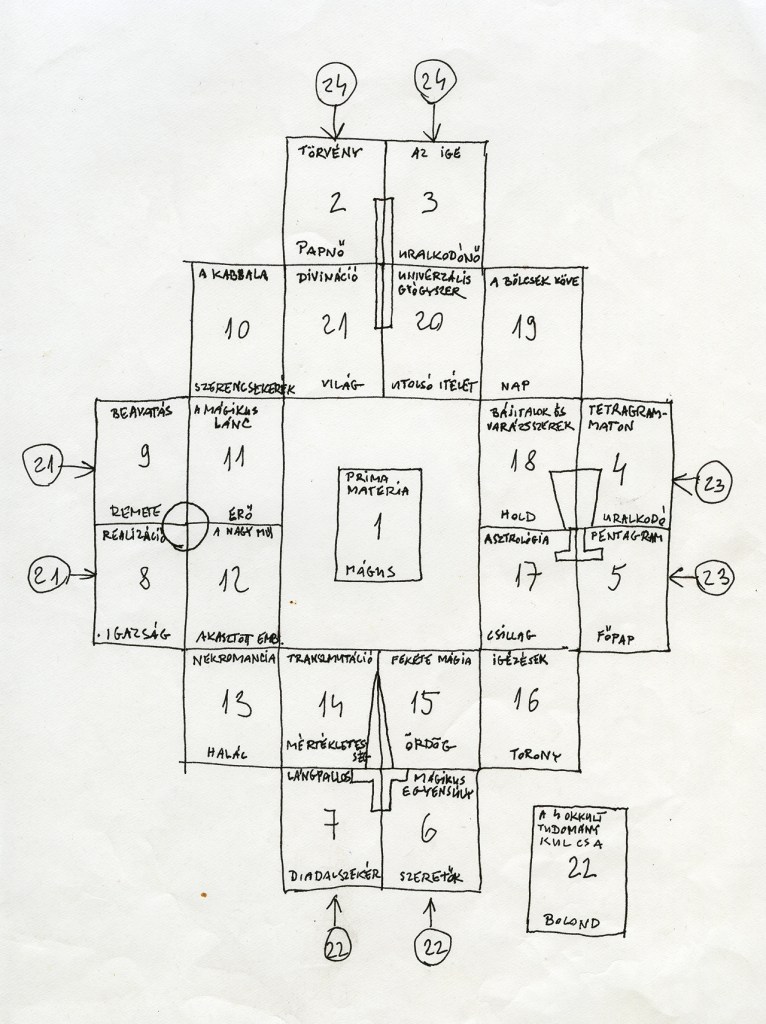 24
24
TÖRVÉNY
2
PAPNŐ
AZ IGE
3
URALKODÓNŐ
A KABBALA
10
SZERENCSEKERÉK
DIVINÁCIÓ
21
VILÁG
UNIVERZÁLIS
GYÓGYSZER
20
UTOLSÓ ITÉLET
A BÖLCSEK KÖVE
19
NAP
21
BEAVATÁS
9
REMETE
A MÁGIKUS
LÁNC
11
ERŐ
PRIMA
MATERIA
1
MÁGUS
BÁJITALOK ÉS
VARÁZSSZEREK
18
HOLD
TETRAGRAM-
MATON
4
URALKODÓ
23
21
REALIZÁCIÓ
8
IGAZSÁG
A NAGY MŰ
12
AKASZTOTT EMB.
ASZTROLÓGIA
17
CSILLAG
PENTAGRAM
5
FŐPAP
23
NEKROMANCIA
13
HALÁL
TRANSZMUTÁCIÓ
14
MÉRTÉKLETES
SÉG
FEKETE MÁGIA
15
ÖRDÖG
IGÉZÉSEK
16
TORONY
LÁNGPALLOS
7
DIADALSZEKÉR
MÁGIKUS
EGYENSÚLY
6
SZERETŐK
A 4 OKKULT
TUDOMÁNY
KULCSA
22
BOLOND
22
22